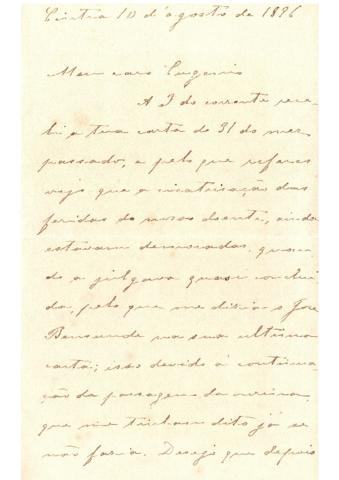 Cintra 10 d'agosto de 1896
Meu caro Eugenio
A 3 do corrente rece-
bi a tua carta de 31 do mez
passado, e pelo que referes
vejo que a cicatrisação das
feridas do nosso doente, ainda
estavam demoradas, quan-
do a julgava quasi conclui
da, pelo que me dizia o José
na sua ultima
carta; isso devido á continua-
ção da passagem da ourina,
que me tinham dito já se
não fazia. Desejo que depois